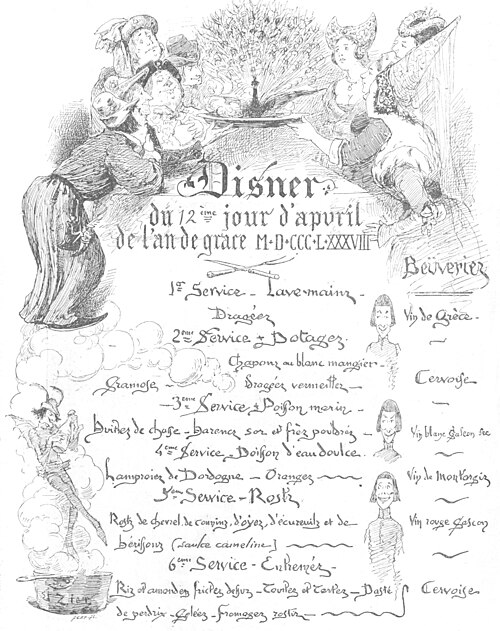 Disner
du 12ème jour d'apvril
de l'an de grâce M·D·CCC·L·XXXVIII
Beüveriez
1er Service - Lave-mains -
Dragéez
Vin de Grèce -
2ème Service : Potagez
Chapons au blanc mangier -
Gramose - Dragées vermeilles -
Cervoise
3ème Service : Poisson marin -
huîtres de chasse - harencs sor et friez poudrés -
Vin blanc Gascon sec
4ème Service - Poisson d'eau doulce -
Lamproiez de Dordogne - Oranges
Vin de Montargis
5ème Service - Rostz
Rostz de chevrel, de conninz, d'oyez, d'écureuilz et de
Vin rouge Gascon
hérissons (saulce cameline)
6ème Service - Entremèz -
Riz et amandes frictes dessus - Tourtes et Tartes - Pasté
Cervoise
de perdrix - Gelées - Fromagez rostiz -